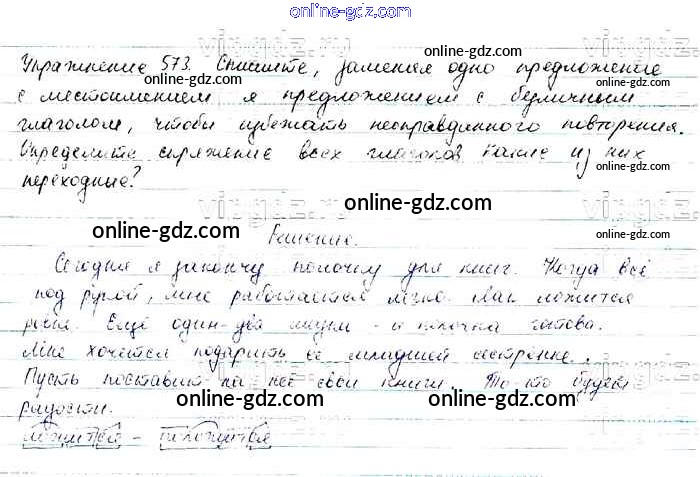 online-gdz.com
Упражнение 573. Спишите, заменяя одно предложение
с местоимением я предложением с безличным
глаголом, чтобы избежать неоправданного повторения.
Определите спряжение всех глаголов. Какие из них
переходные?
online-gdz.com
Решение.
Сегодня я закончу полочку для книг. Когда всё
под рукой, мне работается легко. Как ложится
Ещё один-два - и полочка готова.
Мне хочется подарить её младшей сестрёнке.
Пусть поставит на неё свои книги. То-то будет
радости.
ложится -
online-gdz.com